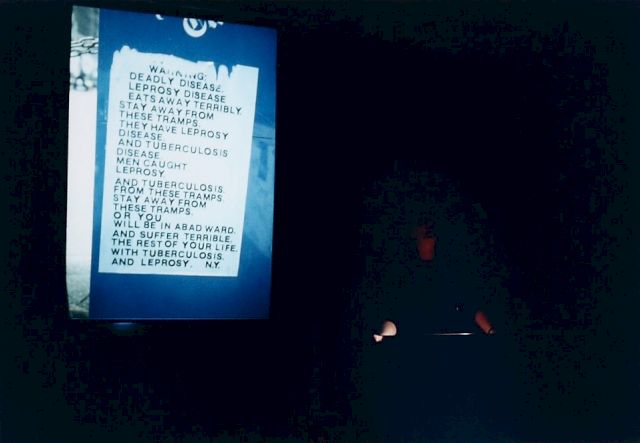 WARNING:
DEADLY DISEASE.
LEPROSY DISEASE
EATS AWAY TERRIBLY.
STAY AWAY FROM
THESE TRAMPS.
THEY HAVE LEPROSY
DISEASE.
AND TUBERCULOSIS
DISEASE.
MEN CAUGHT
LEPROSY
AND TUBERCULOSIS.
FROM THESE TRAMPS.
STAY AWAY FROM
THESE TRAMPS.
OR YOU
WILL BE IN ABAD WARD.
AND SUFFER TERRIBLE.
THE REST OF YOUR LIFE.
WITH TUBERCULOSIS.
AND LEPROSY. N.Y.